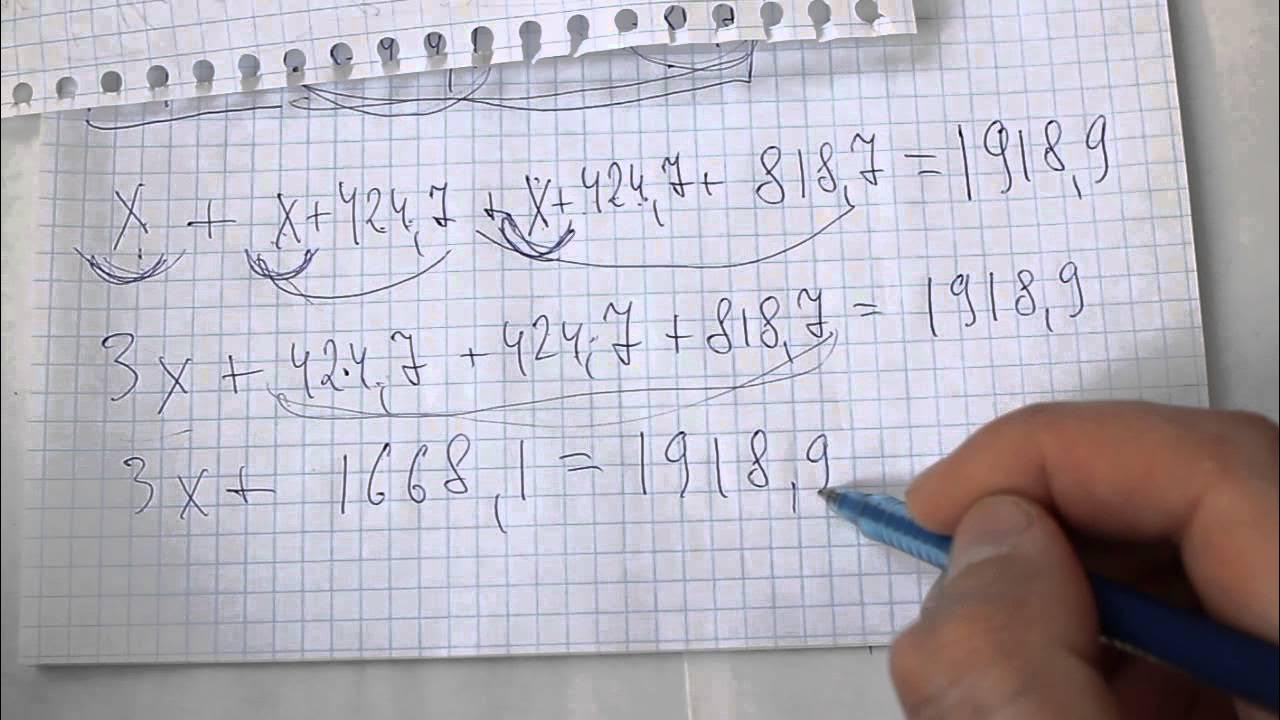 x + x+424,7 + x+424,7+ 818,7 = 1918,9
3x + 424,7 + 424,7 + 818,7 = 1918,9
3x + 1668,1 = 1918,9